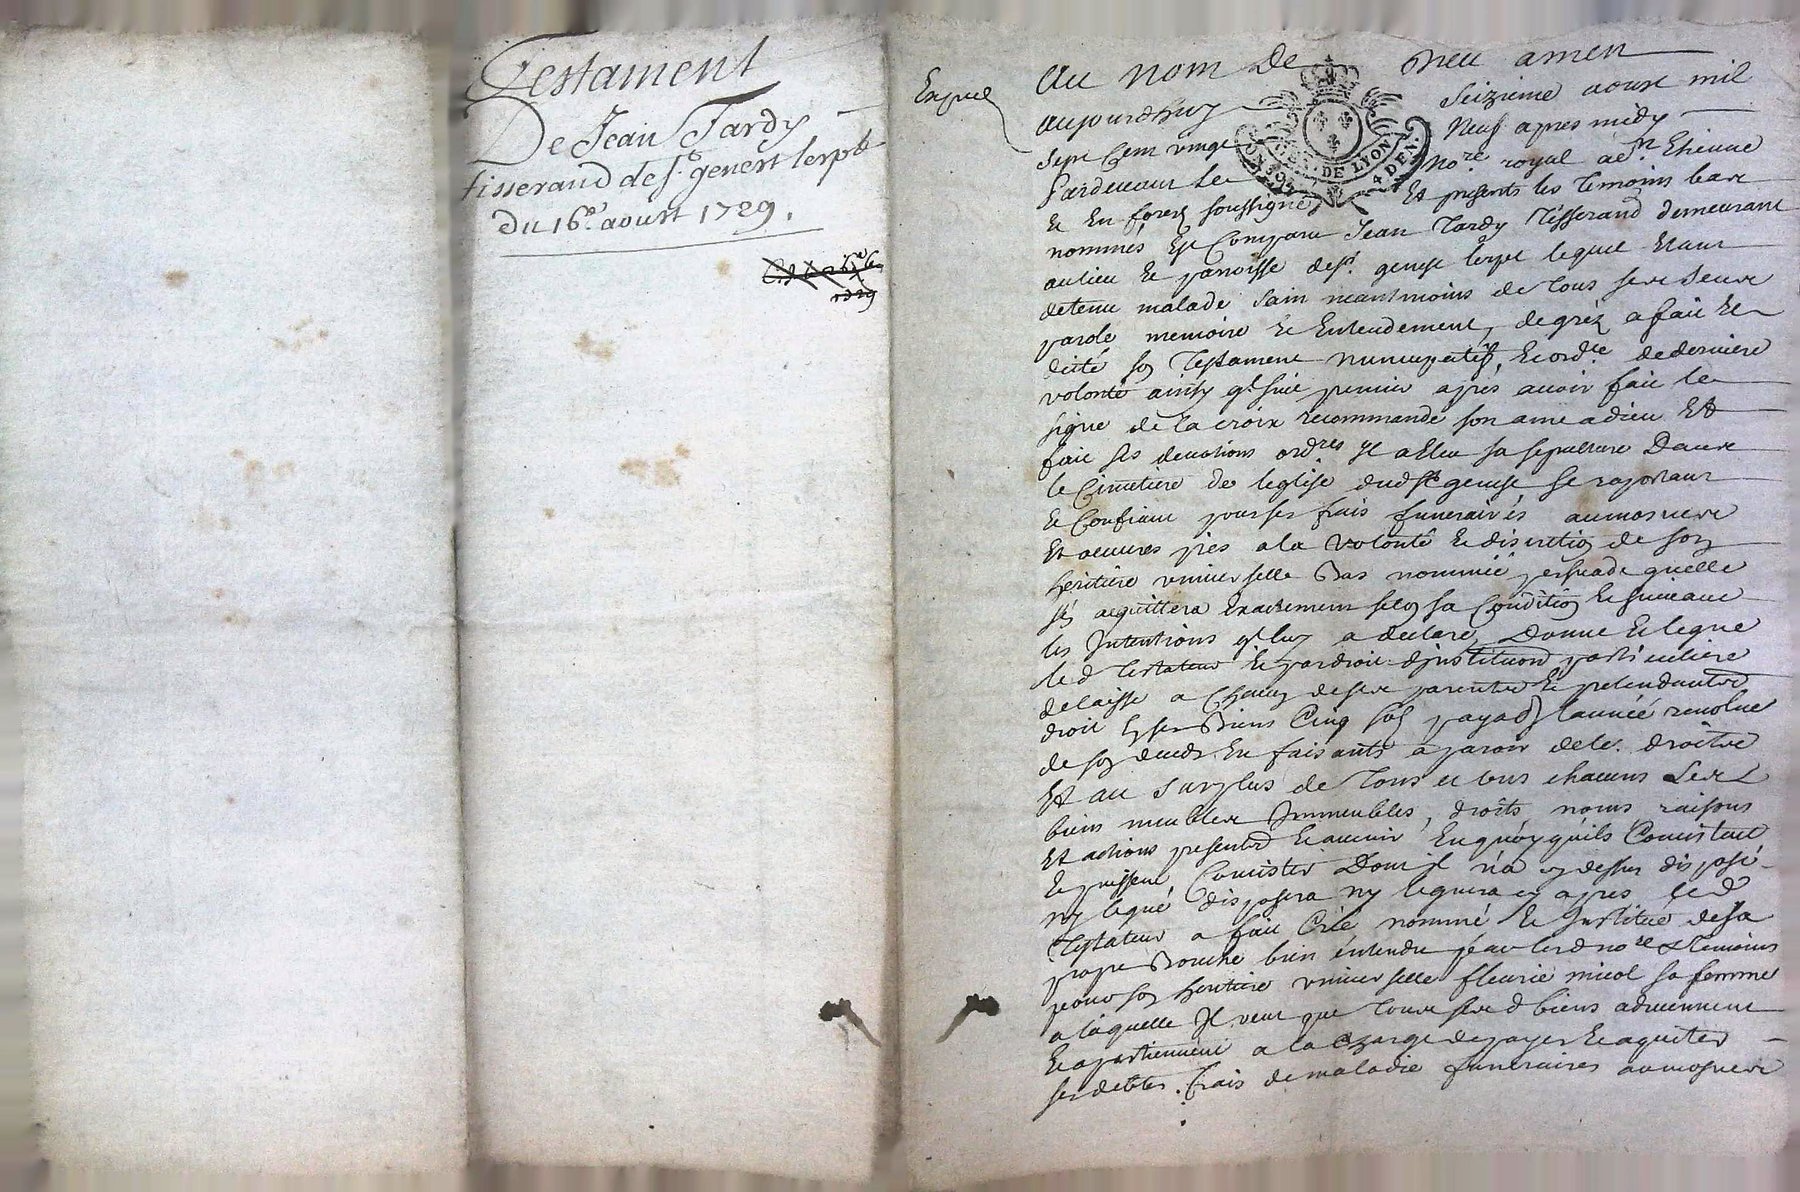 Testament
De Jean Tardy
tisserand de St genest lerpt
Du 16e aoust 1729.
1729
Expedié
Au nom De Dieu amen
aujourdhuy seizieme aoust mil
sept Cent vingt Neuf apres midy
Pardevant Le Nore royal de St Etienne
GEN. DE LYON
4 DEN.
Et En forest soussigné Et presents les temoins bas
nommés Est Comparu Jean Tardy Tisserand demeurant
au lieu Et parroisse de St. genest lerpt lequel Etant
detenu malade sain neantmoins de tous ses sens
parole memoire Et Entendement, de grez a fait Et
dicté son Testament nuncupatif, Et ordre de derniere
volonté ainsy qt suit premier apres avoir fait le
signe de la croix recommandé son ame a dieu Et
fait ses devotions ordres Il a Eleu sa sepulture Dans
le Cimetiere de leglise dud St genest se raportant
Et Confiant pour ses frais funeraires aumosnes
Et oeuvres pies a la volonté Et discretion de son
heritiere universelle Bas nommée persuadé quelle
sen acquittera Exactement selon sa Condition Et suivant
les Intentions qt luy a declaré, Donne Et legue
led Testateur Et par droit dinstitution particuliere
delaisse a Chacun de ses parents Et pretendants
droit En ses Biens Cinq sols payad lannée revolue
de son deceds En faisants aparoir de le. droits
Et au surplus de Tous et uns chacuns Ses
biens meubles Immeubles, droits, noms raisons
Et actions presents Et avenir En quoy quils Consistent
Et puissent Consister Dont Il na cy dessus disposé
ny legué disposera ny leguera cy apres led
Testateur a fait Créé nommé Et Institué de sa
propre Bouche bien entendu par lesd nore & temoins
pour son heritiere universelle fleurie micol sa femme
a laquelle Il veut que tous sesd biens adviennent
Et apartiennent a la Charge de payer Et aquiter
ses debtes. frais de maladie funeraires aumosnes